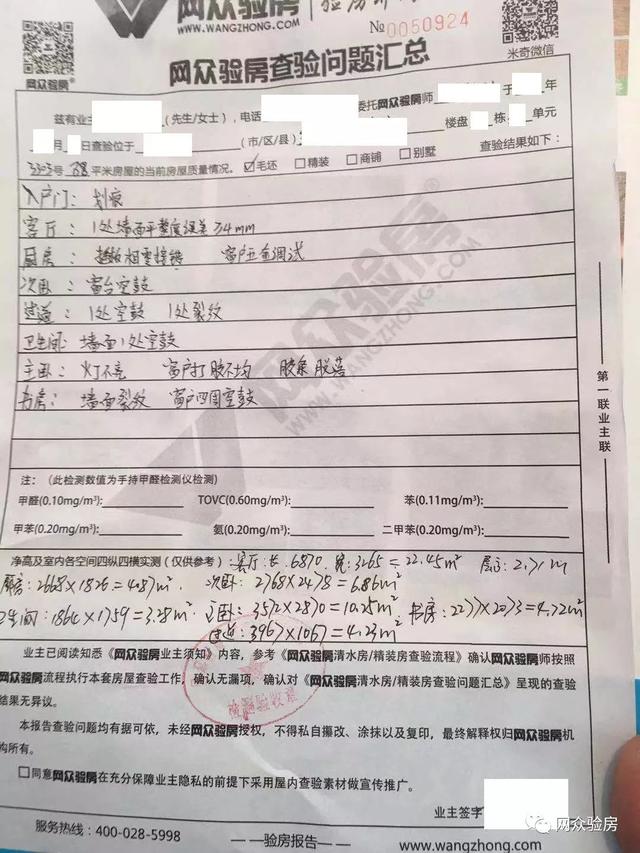 网众验房 验房
WWW.WANGZHONG.COM
№0050924
网众验房
网众验房查验问题汇总
米奇微信
兹有业主 (先生/女士)，电话 委托网众验房师 于 年
月 日查验位于 (市/区/县) 楼盘 栋 单元
3303号 88 平米房屋的当前房屋质量情况。 ☑毛坯 □精装 □商铺 □别墅 查验结果如下：
入户门: 划痕
客厅: 1处墙面平整度误差34mm
厨房: 窗户五金调试
次卧: 窗台空鼓
过道: 1处空鼓 1处裂纹
卫生间: 墙面1处空鼓
主卧: 灯不亮 窗户打胶不均 胶条脱落
书房: 墙面裂纹 窗户四周空鼓
网众验房
WWW.WANGZHONG.COM
第一联业主联
注：(此检测数值为手持甲醛检测仪检测)
甲醛(0.10mg/m³): TOVC(0.60mg/m³): 苯(0.11mg/m³):
甲苯(0.20mg/m³): 氨(0.20mg/m³): 二甲苯(0.20mg/m³):
净高及室内各空间四纵四横实测 (仅供参考): 客厅: 长6870 宽3265=22.45m² 层高: 2.71m
厨房: 2668×1826=4.87m² 次卧: 2768×2478=6.86m²
卫生间: 1864×1759=3.28m² 主卧: 3572×2870=10.25m² 书房: 2277×2073=4.72m²
过道: 3967×1067=4.23m²
业主已阅读知悉《网众验房业主须知》内容，参考《网众验房清水房/精装房查验流程》确认网众验房师按照
网众验房流程执行本套房屋查验工作，确认无漏项，确认对《网众验房清水房/精装房查验问题汇总》呈现的查验
结果无异议。
本报告查验问题均有据可依，未经网众验房授权，不得私自篡改、涂抹以及复印，最终解释权归网众验房机
构所有。
□同意网众验房在充分保障业主隐私的前提下采用屋内查验素材做宣传推广。
业主签字
服务热线：400-028-5998
—验房报告—
www.wangzhong.com
网众验房